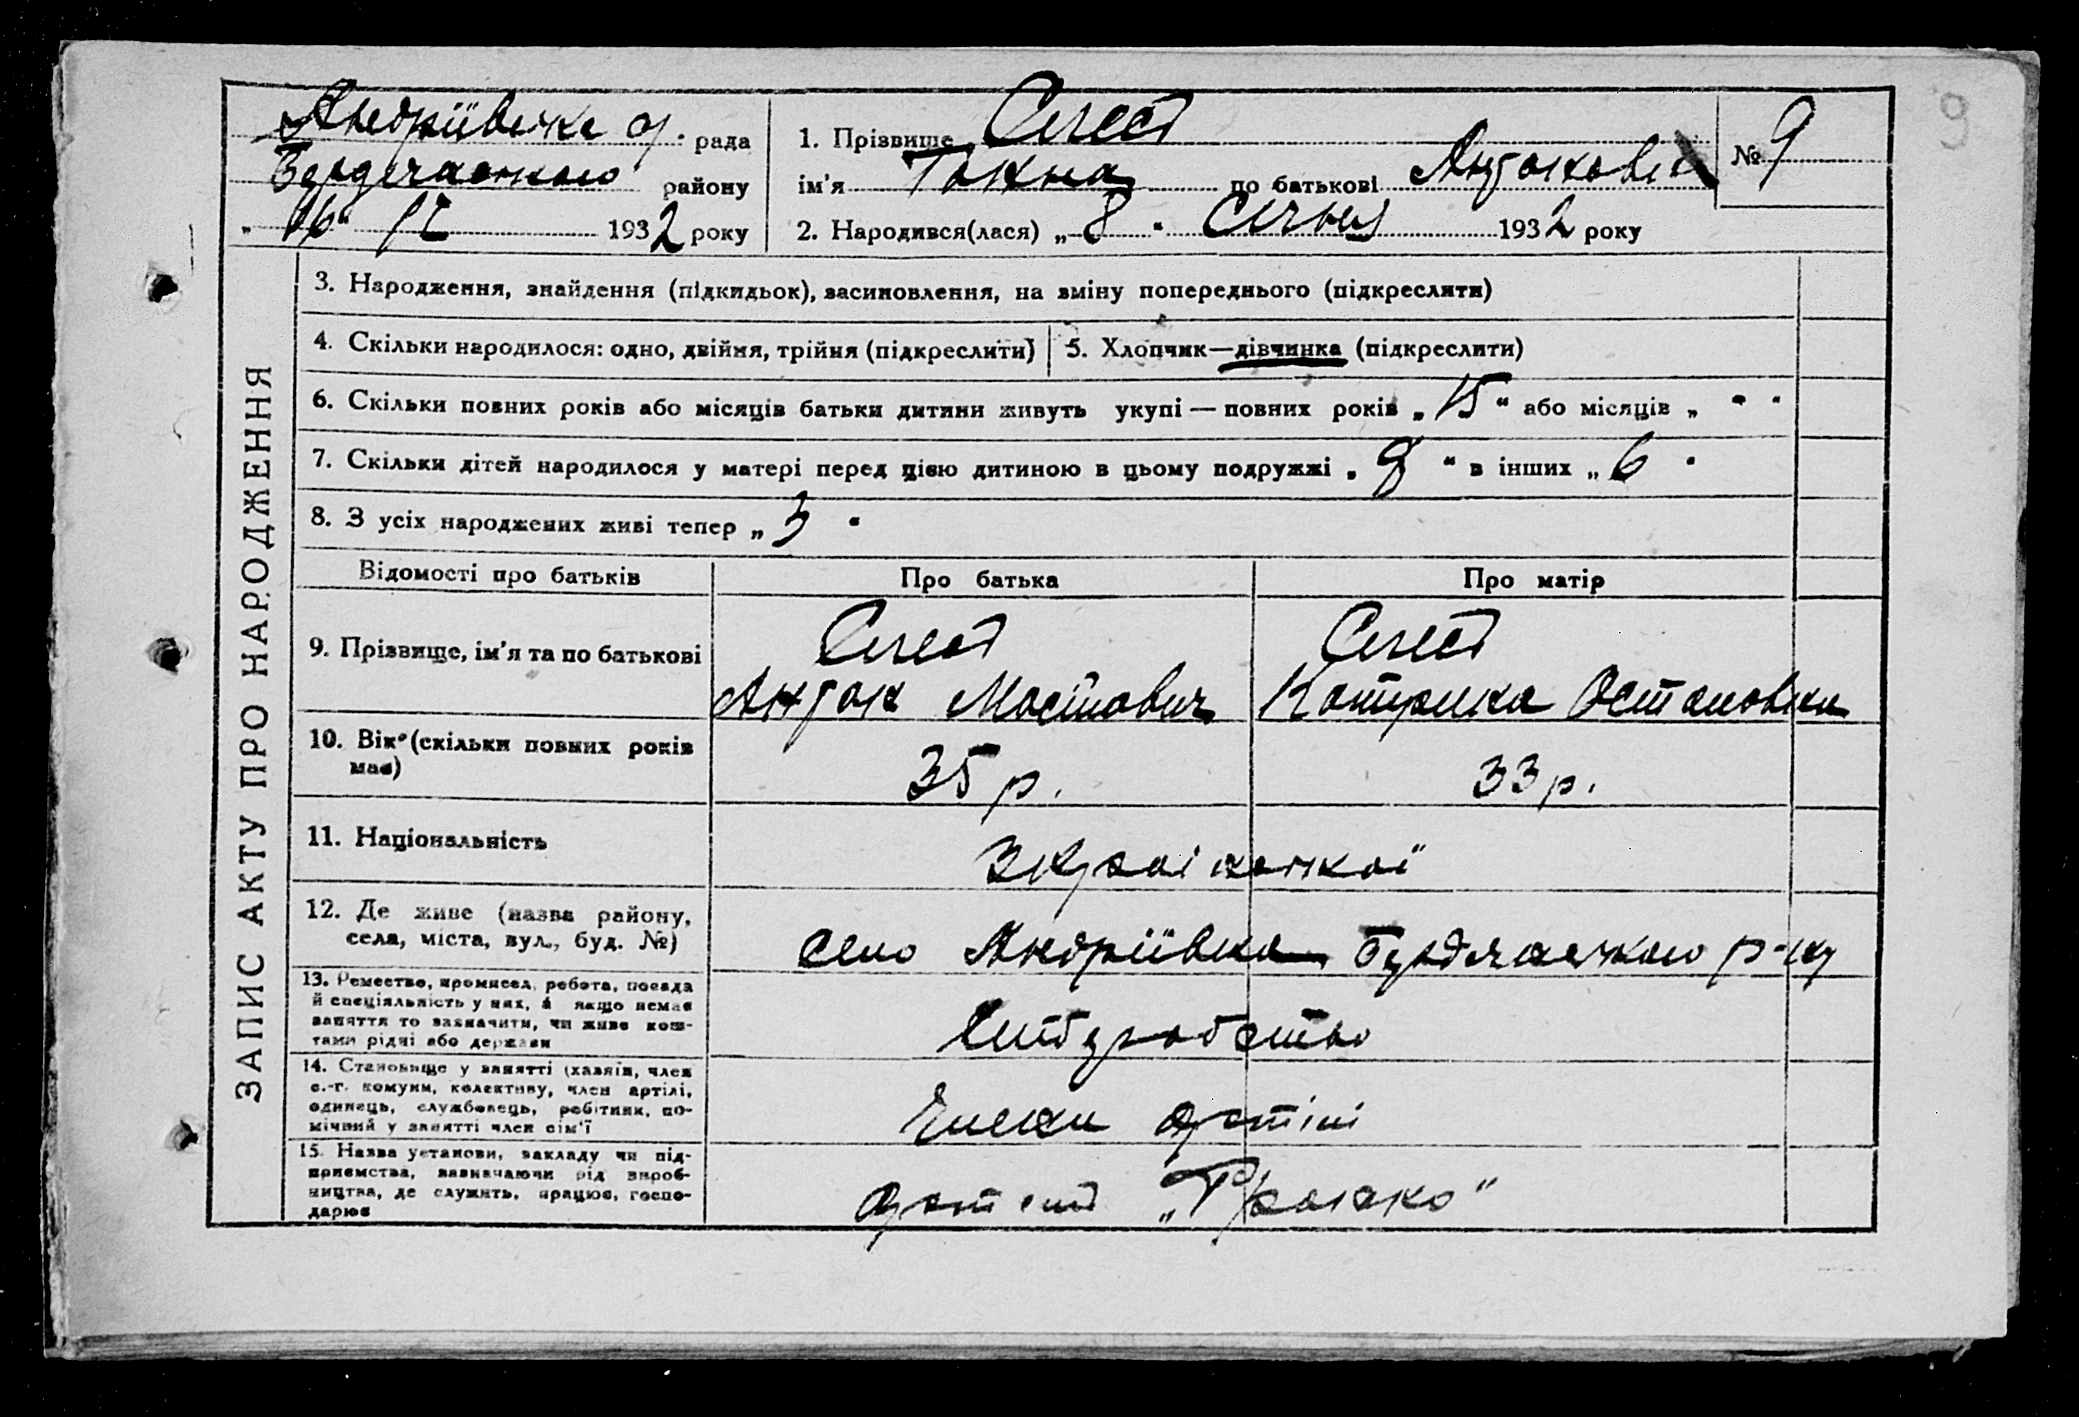 Андріївська с. рада
Бердянського району
„16“ II 1932 року
1. Прізвище
ім'я Тахна по батькові Антонов
2. Народився(лася) „8“ Січня 1932 року
№ 9
9
ЗАПИС АКТУ ПРО НАРОДЖЕННЯ
3. Народження, знайдення (підкидьок), засиновлення, на зміну попереднього (підкреслити)
4. Скільки народилося: одно, двійня, трійня (підкреслити)
5. Хлопчик—дівчинка (підкреслити)
6. Скільки повних років або місяців батьки дитини живуть укупі — повних років „15“ або місяців „ - “
7. Скільки дітей народилося у матері перед цією дитиною в цьому подружжі „ “ в інших „6“
8. З усіх народжених живі тепер „3“
Відомості про батьків
Про батька
Про матір
9. Прізвище, ім'я та по батькові
Антон
Катрина Остаповна
10. Вік (скільки повних років має)
35 р.
33 р.
11. Національність
Україн
12. Де живе (назва району,
села, міста, вул., буд. №)
село Андріївка Бердянського р-ну
13. Ремество, промисел, робота, посада
й спеціяльність у них, а якщо немає
заняття то зазначити, чи живе кош-
тами рідні або держави
Хліборобство
14. Становище у занятті (хазяїн, член
с.-г. комуни, колективу, член артілі,
одинець, службовець, робітник, по-
мічний у занятті член сім'ї
Члени артілі
15. Назва установи, закладу чи під-
приємства, зазначаючи рід вироб-
ництва, де служить, працює, госпо-
дарює
артіль